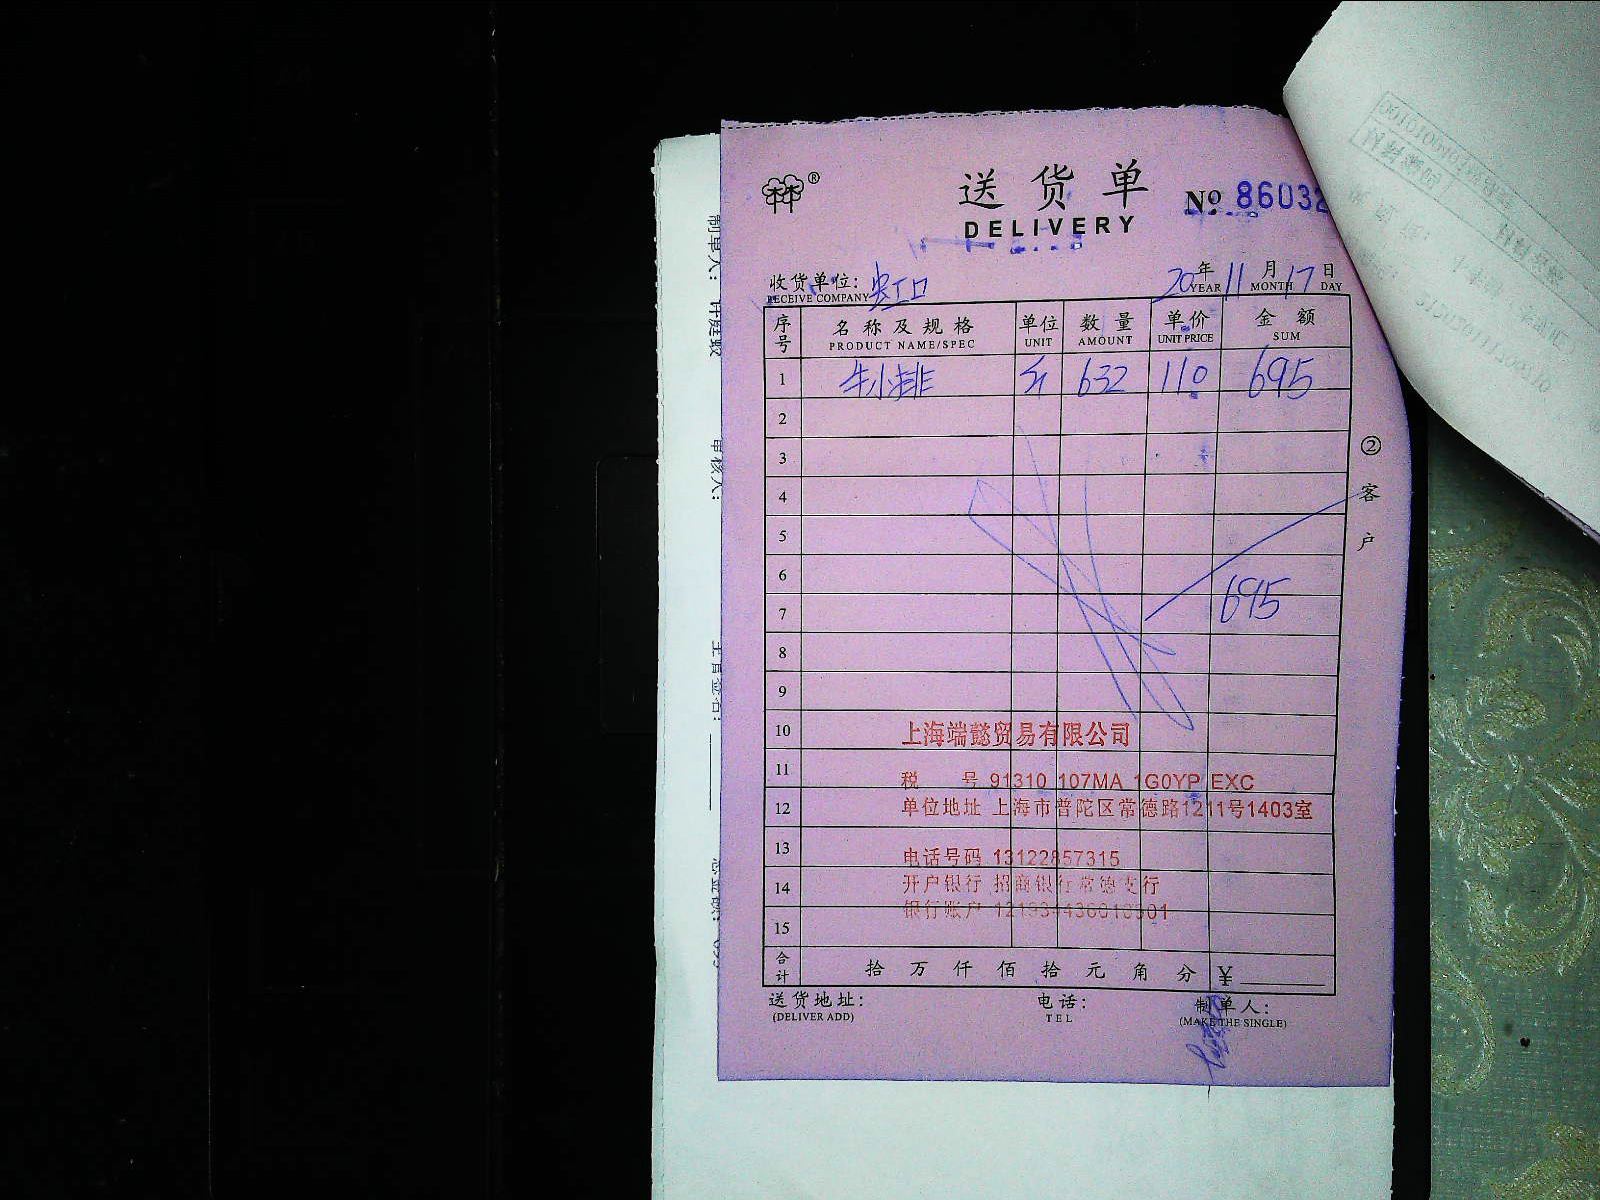 送货单
DELIVERY
№ 86032
收货单位: 虹口
RECEIVE COMPANY
20年 11月 17日
YEAR MONTH DAY
序号 名称及规格 单位 数量 单价 金额
PRODUCT NAME/SPEC UNIT AMOUNT UNIT PRICE SUM
1 牛小排 斤 632 110 695
2
3
4
5
6
7 695
8
9
10
11
12
13
14
15
上海端懿贸易有限公司
税 号 91310 107MA 1G0YP EXC
单位地址 上海市普陀区常德路1211号1403室
电话号码 13122857315
开户银行 招商银行常德支行
银行账户
合计 拾 万 仟 佰 拾 元 角 分 ¥
送货地址: 电话: 制单人:
(DELIVER ADD) TEL (MAKE THE SINGLE)
② 客户
制单人:
审核人:
主管签名: